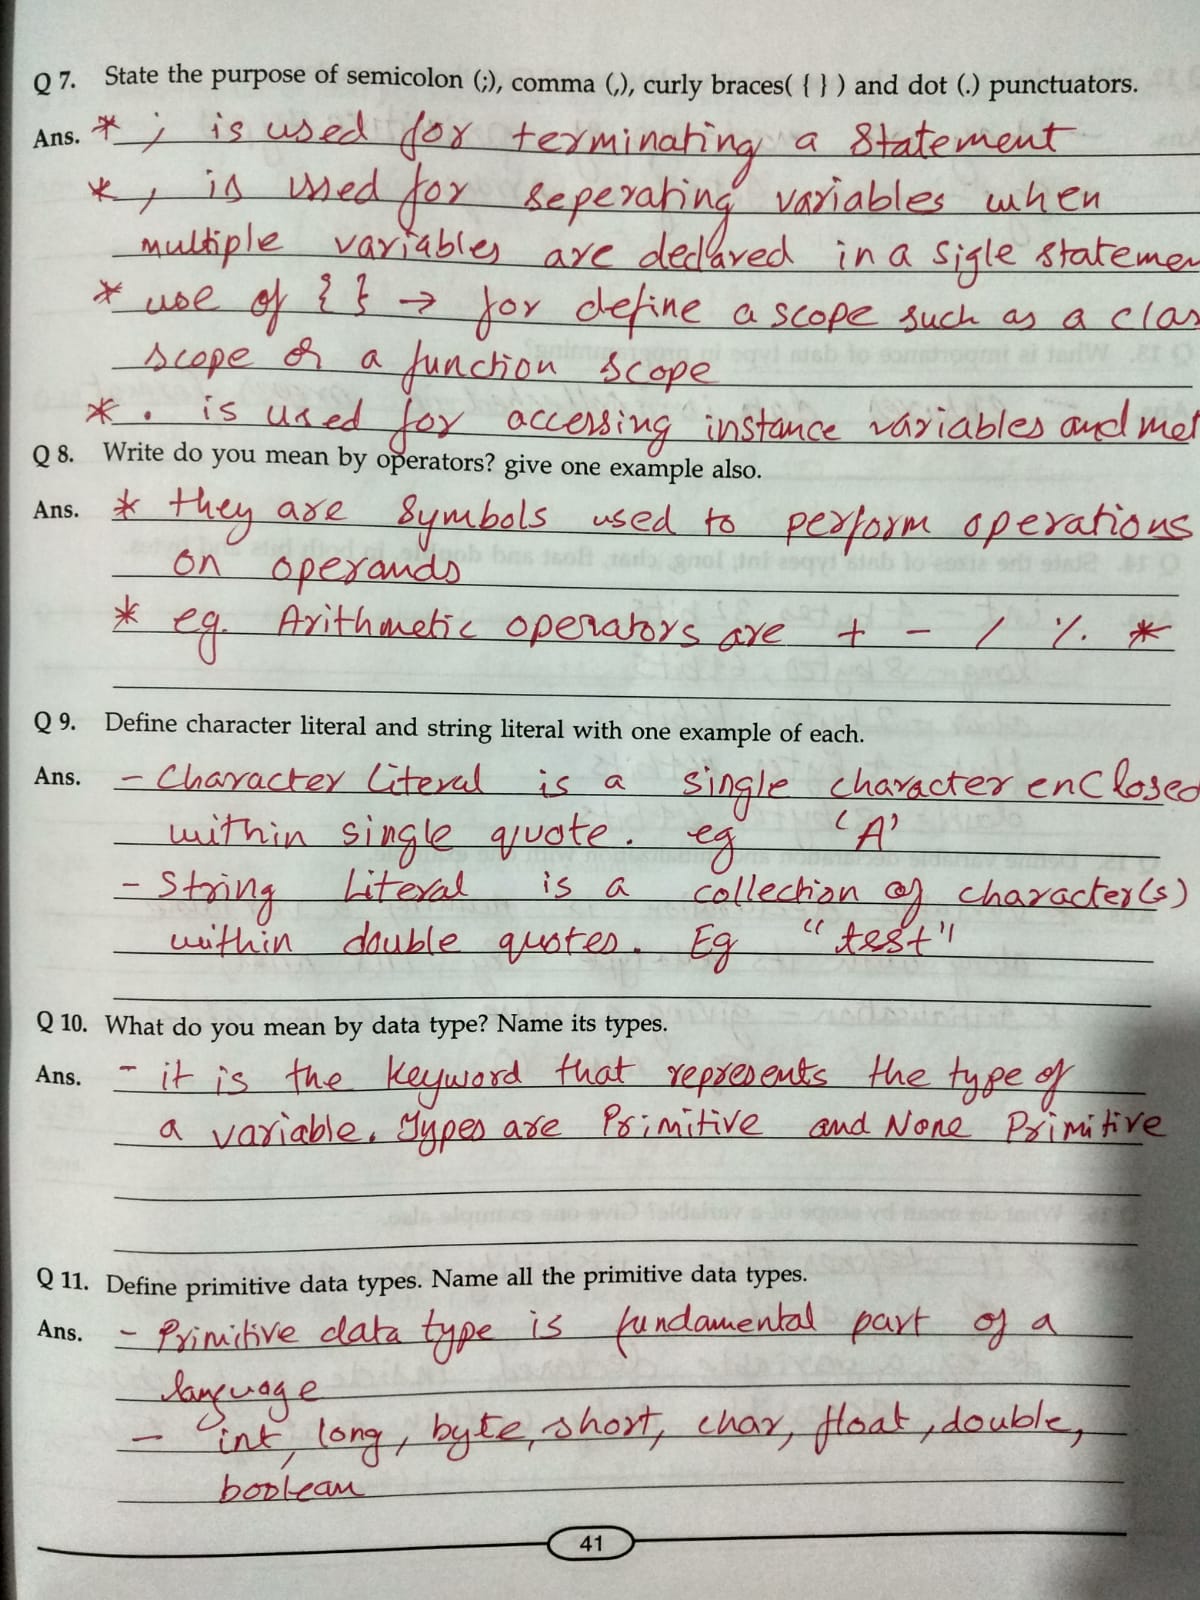 Q 7. State the purpose of semicolon (;), comma (,), curly braces( { } ) and dot (.) punctuators.
Ans. * ; is used for terminating a Statement
* , is used for seperating variables when
multiple variables are declared in a sigle statemen
* use of { } → for define a scope such as a clas
scope or a function scope
* . is used for accessing instance variables and met
Q 8. Write do you mean by operators? give one example also.
Ans. * they are symbols used to perform operations
on operands
* eg. Arithmetic operators are + - / % *
Q 9. Define character literal and string literal with one example of each.
Ans. - Character Literal is a single character enclosed
within single quote. eg 'A'
- String Literal is a collection of character(s)
within double quotes. Eg "test"
Q 10. What do you mean by data type? Name its types.
Ans. - it is the keyword that represents the type of
a variable. Types are Primitive and None Primitive
Q 11. Define primitive data types. Name all the primitive data types.
Ans. - Primitive data type is fundamental part of a
language
- int, long, byte, short, char, float, double,
boolean
41